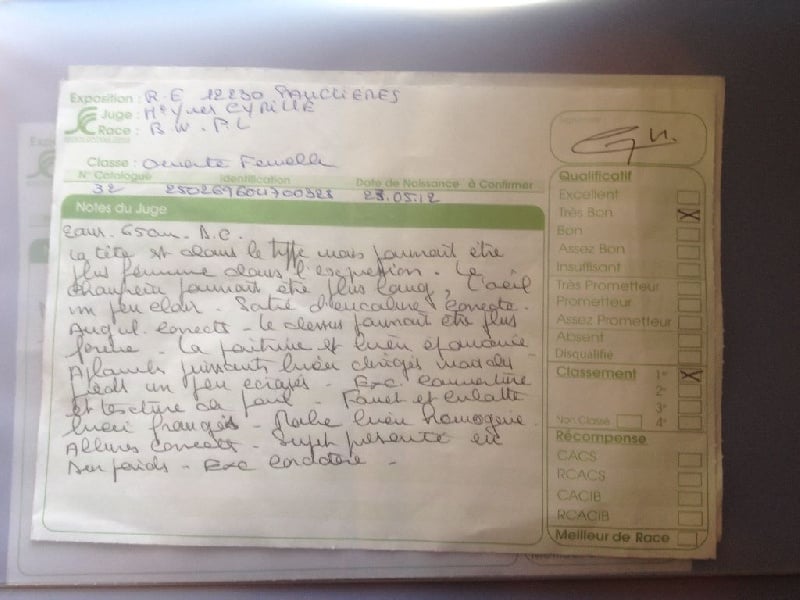 Exposition : R.E 12230 NAUCLIERES
Juge : Mr Yves CYRILLE
Race : B.W.P.L
Classe : Ouverte Femelle
N° Catalogue Identification Date de Naissance à Confirmer
32 250269604700323 23.05.12
Notes du Juge
65cm. D.C.
La tête est dans le type mais pourrait être
plus femme dans l'expression. Le
chanfrein pourrait être plus long, L'oeil
un peu clair. d'encolure correcte.
Angul. correcte - le dessus pourrait être plus
ferme. La poitrine est bien
puissants bien dirigés mais les
pieds un peu écrasés - Exc. couverture
et texture de poil. Fouet et culotte
bien frangés - Robe bien homogène.
Allures correctes - Sujet présenté en
bon poids - Exc caractère -
Qualificatif
Excellent
Très Bon
Bon
Assez Bon
Insuffisant
Très Prometteur
Prometteur
Assez Prometteur
Absent
Disqualifié
Classement 1°
2°
3°
Non Classé 4°
Récompense
CACS
RCACS
CACIB
RCACIB
Meilleur de Race